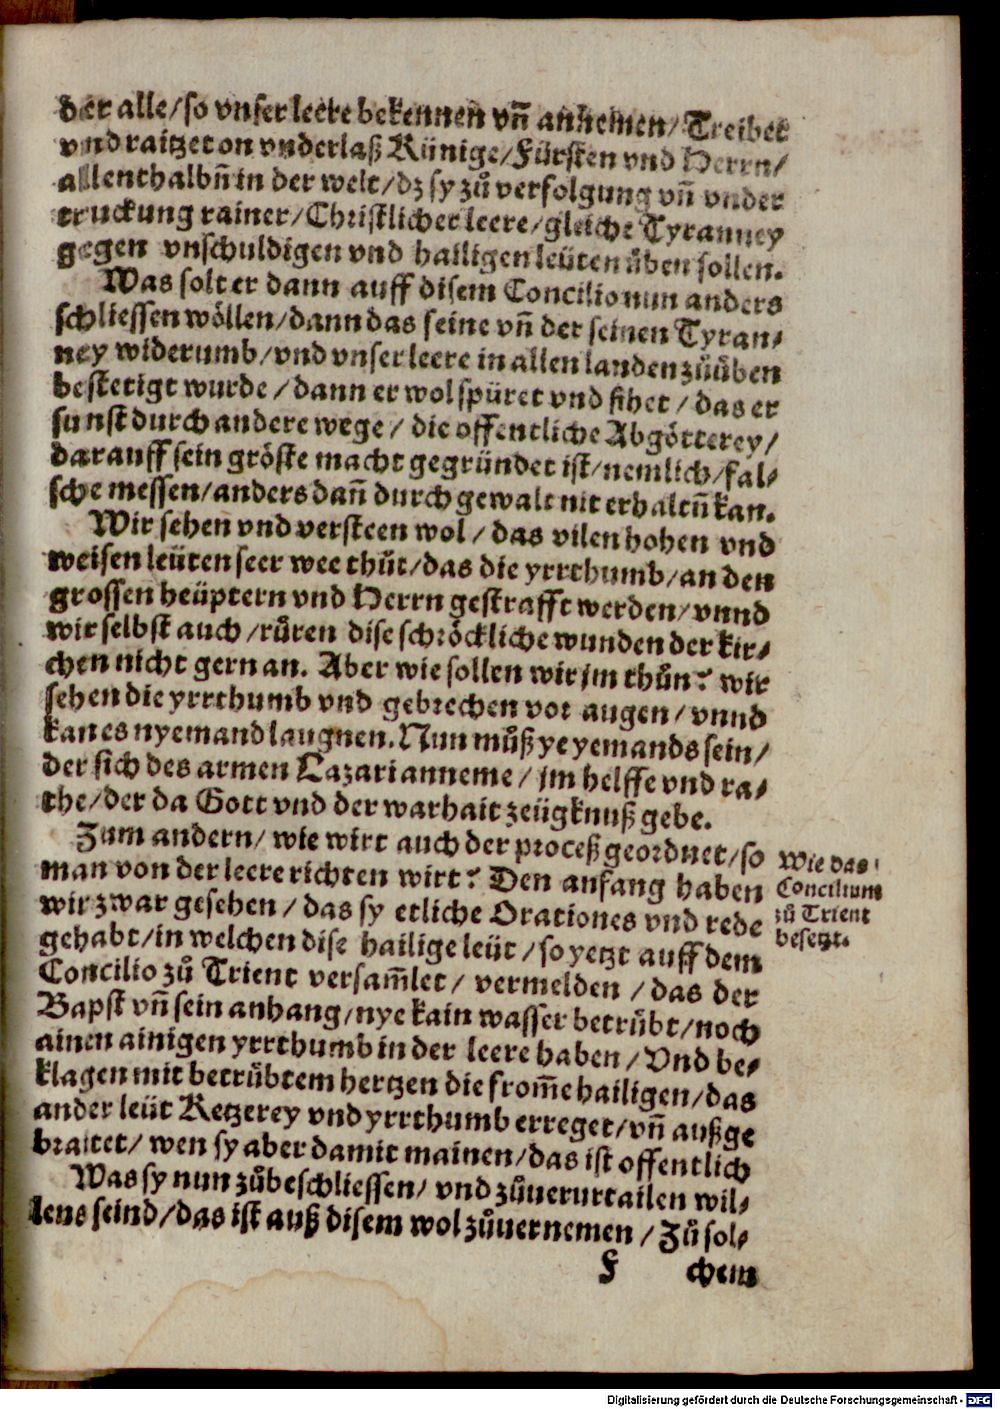 der alle/so vnser leere bekennen vñ annemen/Treibet
vnd raitzet on vnderlaß Künige/Fürsten vnd Herrn/
allenthalbñ in der welt/dz sy zů verfolgung vñ vnder
truckung rainer/Christlicher leere/gleiche Tyranney
gegen vnschuldigen vnd hailigen leüten üben sollen.
Was solt er dann auff disem Concilio nun anders
schliessen wöllen/dann das seine vñ der seinen Tyran⸗
ney widerumb/vnd vnser leere in allen landen zůüben
bestetigt wurde/dann er wol spüret vnd sihet/das er
sunst durch andere wege/die offentliche Abgötterey/
darauff sein gröste macht gegründet ist/nemlich/fal⸗
sche messen/anders dañ durch gewalt nit erhaltñ kan.
Wir sehen vnd versteen wol/das vilen hohen vnd
weisen leüten seer wee thůt/das die yrrthumb/an den
grossen heüptern vnd Herrn gestrafft werden/vnnd
wir selbst auch/růren dise schröckliche wunden der kir⸗
chen nicht gern an. Aber wie sollen wir jm thůn? wir
sehen die yrrthumb vnd gebrechen vor augen/vnnd
kan es nyemand laugnen. Nun můß ye yemands sein/
der sich des armen Lazari anneme/jm helffe vnd ra⸗
the/der da Gott vnd der warhait zeügknuß gebe.
Zum andern/wie wirt auch der proceß geordnet/so
man von der leere richten wirt? Den anfang haben
wir zwar gesehen/das sy etliche Orationes vnd rede
gehabt/in welchen dise hailige leüt/so yetzt auff dem
Concilio zů Trient versam̃let/vermelden/das der
Bapst vñ sein anhang/nye kain wasser betrübt/noch
ainen ainigen yrrthumb in der leere haben/Vnd be⸗
klagen mit betrübtem hertzen die from̃e hailigen/das
ander leüt Ketzerey vnd yrrthumb erreget/vñ außge
braitet/wen sy aber damit mainen/das ist offentlich
Was sy nun zůbeschliessen/vnd zůuerurtailen wil⸗
lens seind/das ist auß disem wol zůuernemen/Zů sol⸗
F chem
Wie das
Concilium
zů Trient
besetzt.
Digitalisierung gefördert durch die Deutsche Forschungsgemeinschaft - DFG